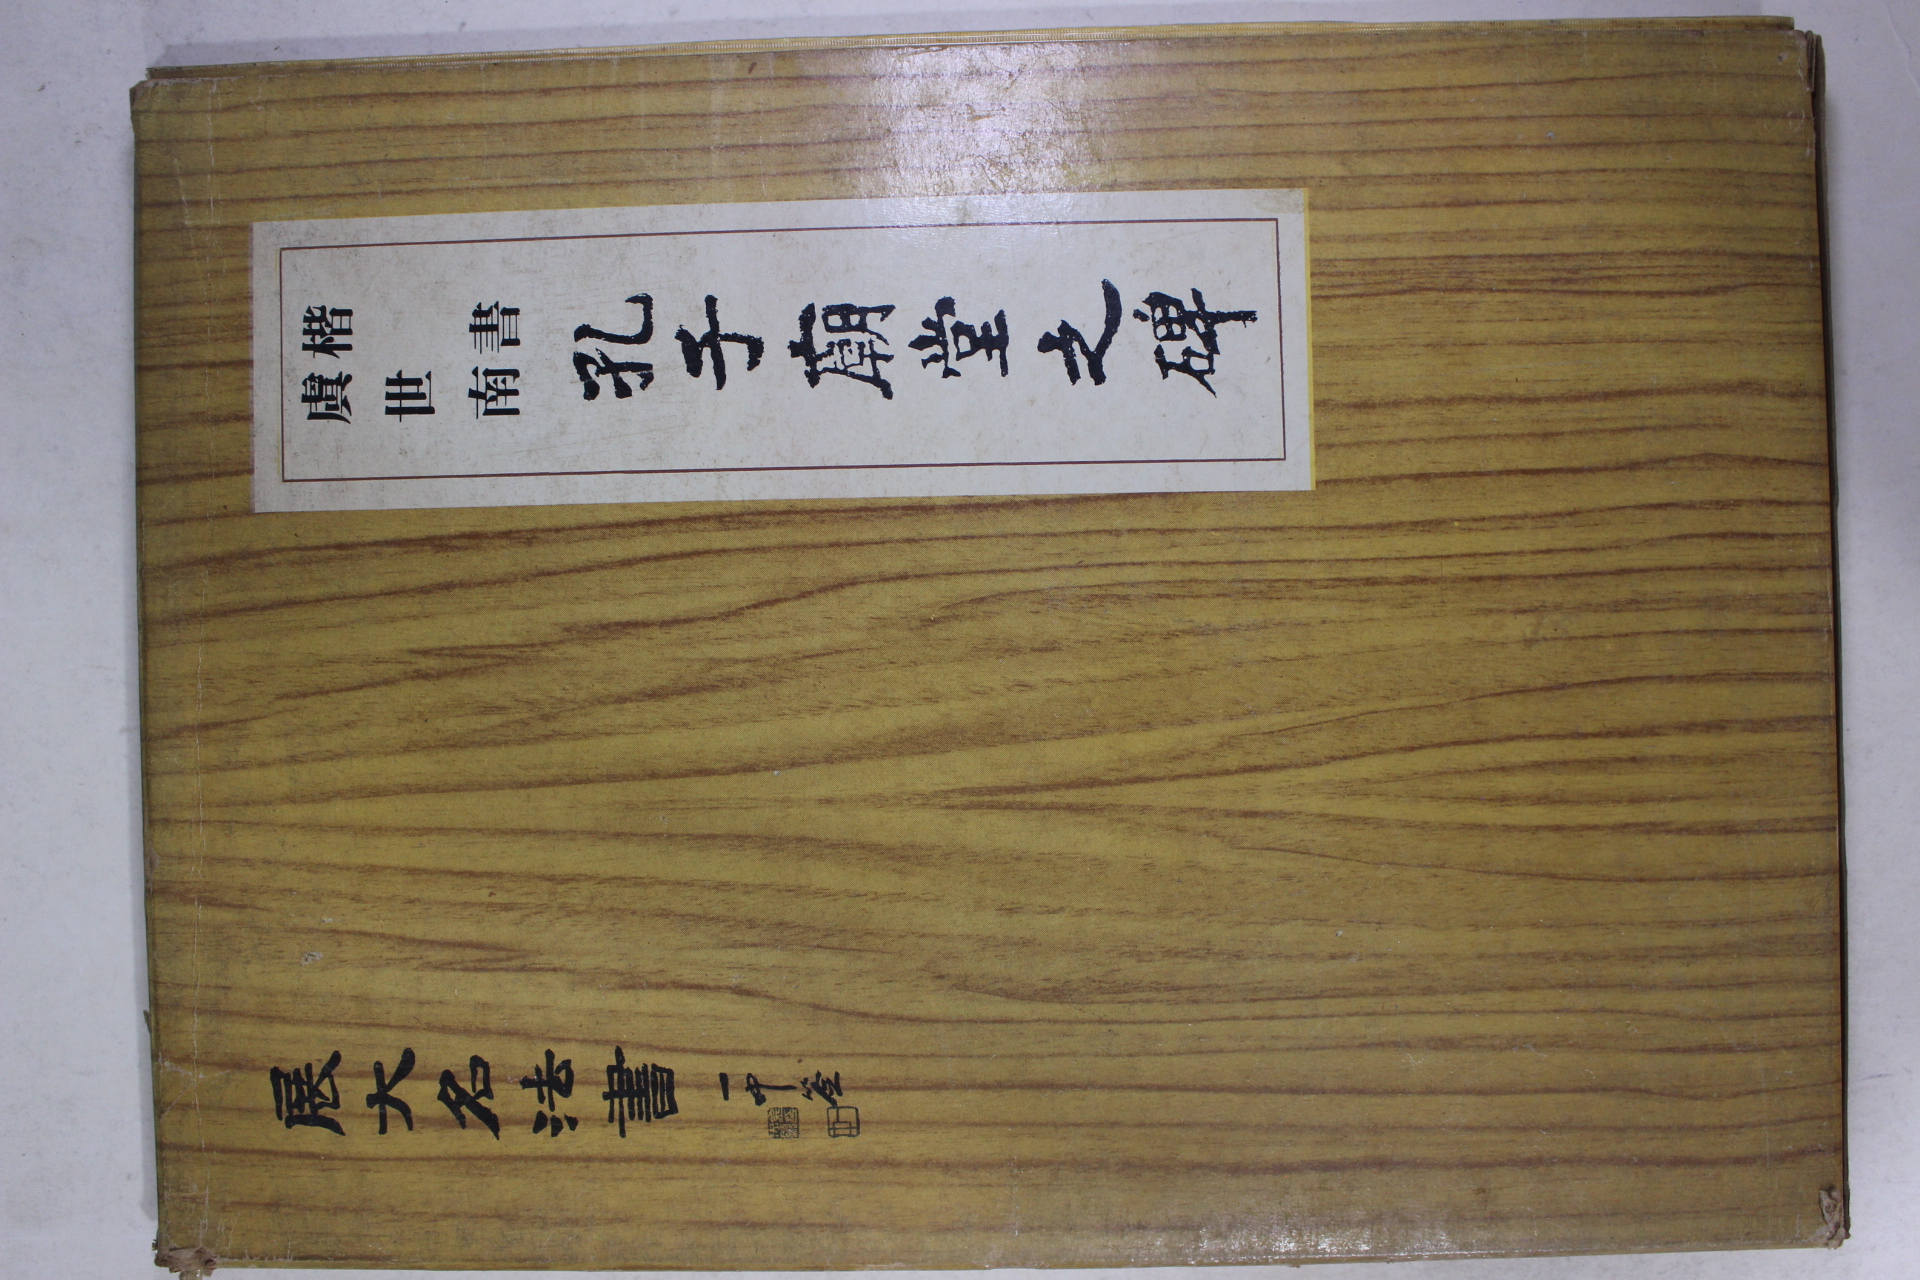 楷書
虞世南
孔子廟堂之碑
歷大名法書
一中